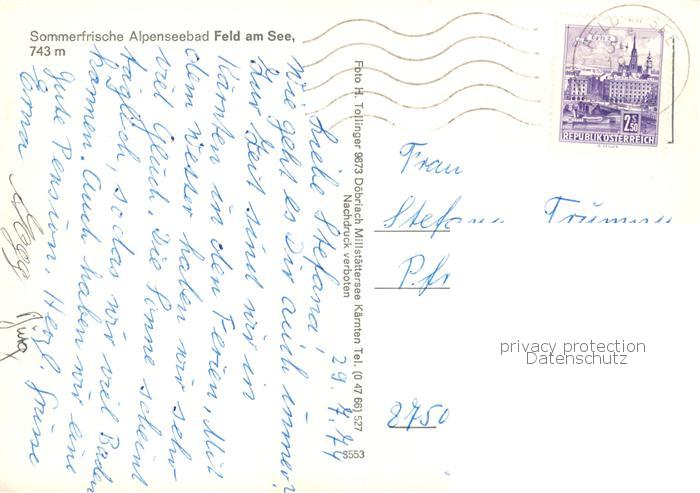 Sommerfrische Alpenseebad Feld am See,
743 m
Foto H. Tollinger 9873 Döbriach Millstättersee Kärnten Tel. (0 47 66) 527
Nachdruck verboten
S553
29.7.74
Liebe Stefana,
wie geht es Dir auch immer?
Zur Zeit sind wir in
Kärnten in den Ferien. Mit
dem Wetter haben wir sehr
viel Glück. Die Sonne scheint
täglich, so das wir viel Baden
können. Auch haben wir eine
gute Pension. Herzl. Grüsse
Erna
2 S 50
REPUBLIK ÖSTERREICH
Frau
Pfr
8750
privacy protection
Datenschutz